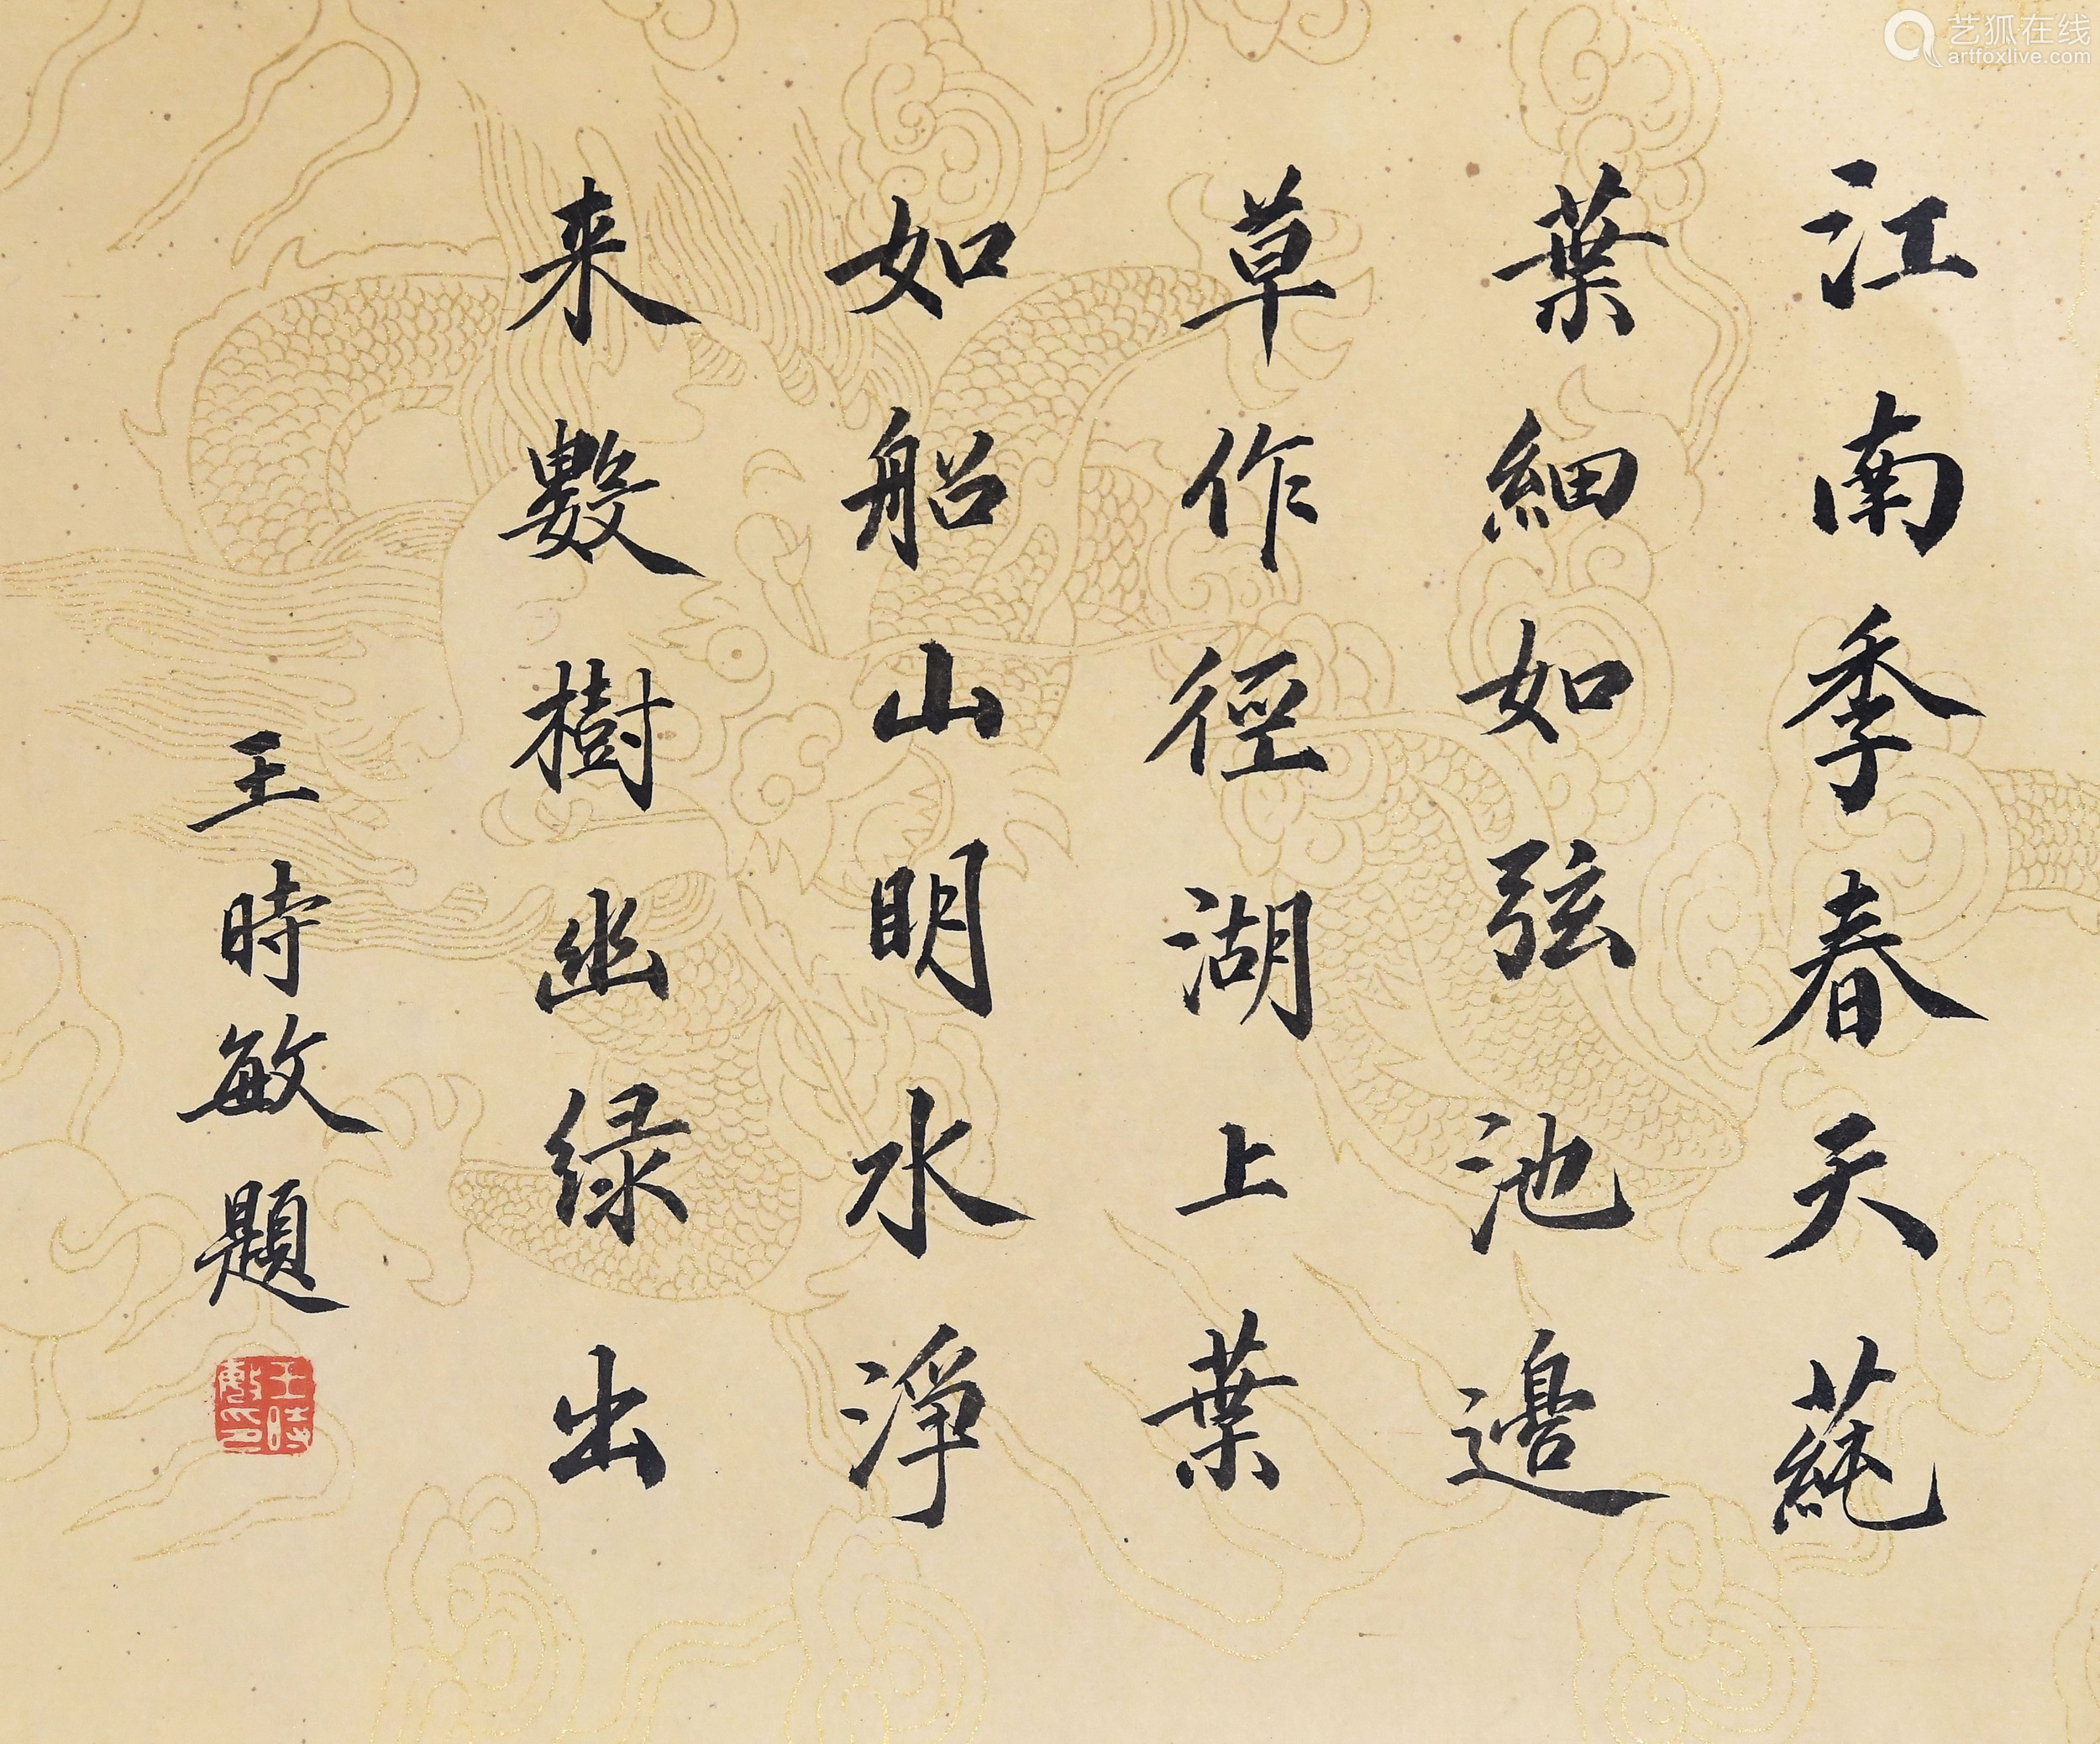 江南季春天蒓
葉細如弦池邊
草作徑湖上葉
如船山明水淨
来數樹幽绿出
王時敏題
王時敏印
艺狐在线
artfoxlive.com